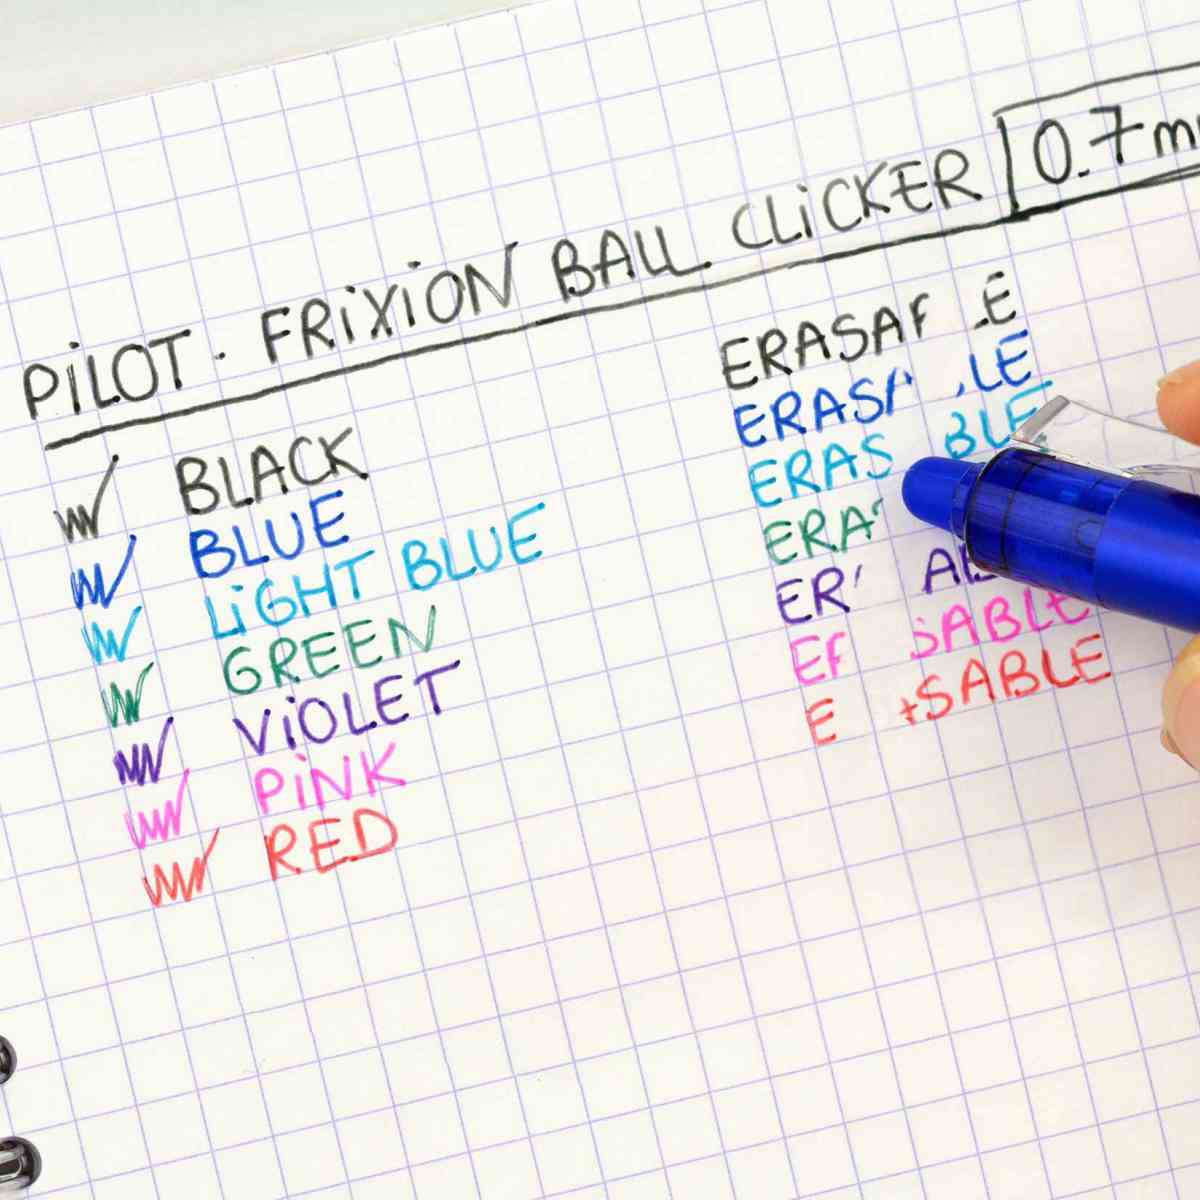 PiLOT · FRiXiON BALL CLiCKER 0.7 m
BLACK
BLUE
LiGHT BLUE
GREEN
ViOLET
PiNK
RED
ERASA LE
ERAS LE
ERAS BLE
ERA
ER AB
E SABLE
E SABLE